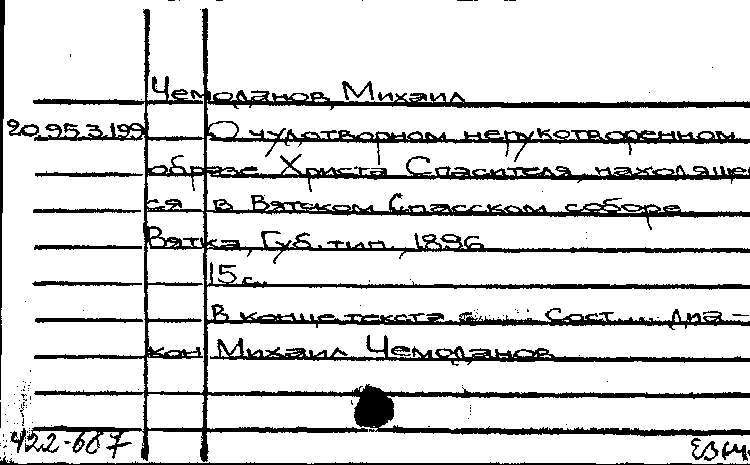 Чемоданов, Михаил
20.95.3.199 О чудотворном нерукотворенном
образе Христа Спасителя, находяще
ся в Вятском Спасском соборе
Вятка, Губ. тип., 1896
15 с.
В конце текста Сост. диа-
кон Михаил Чемоданов
422-667